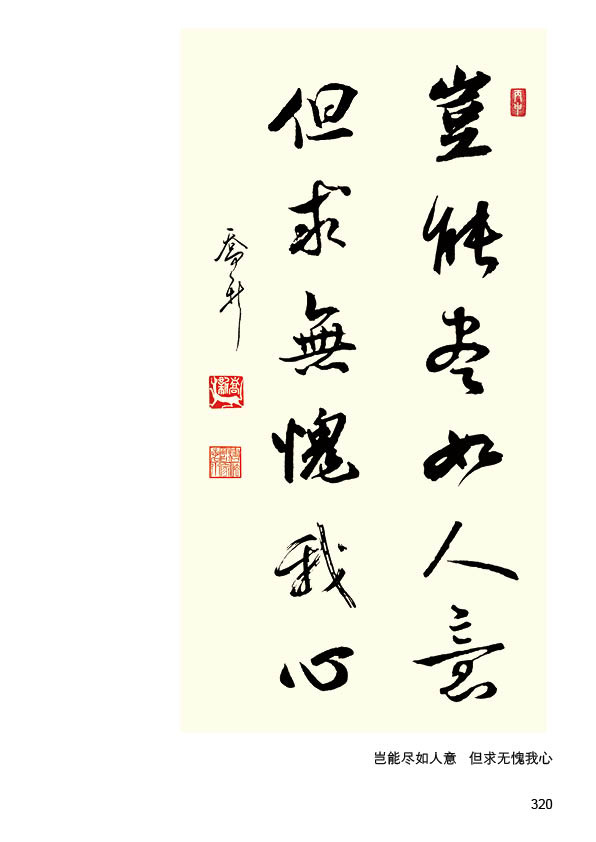 豈能尽如人意
但求無愧我心
喬新
丙申
岂能尽如人意 但求无愧我心
320